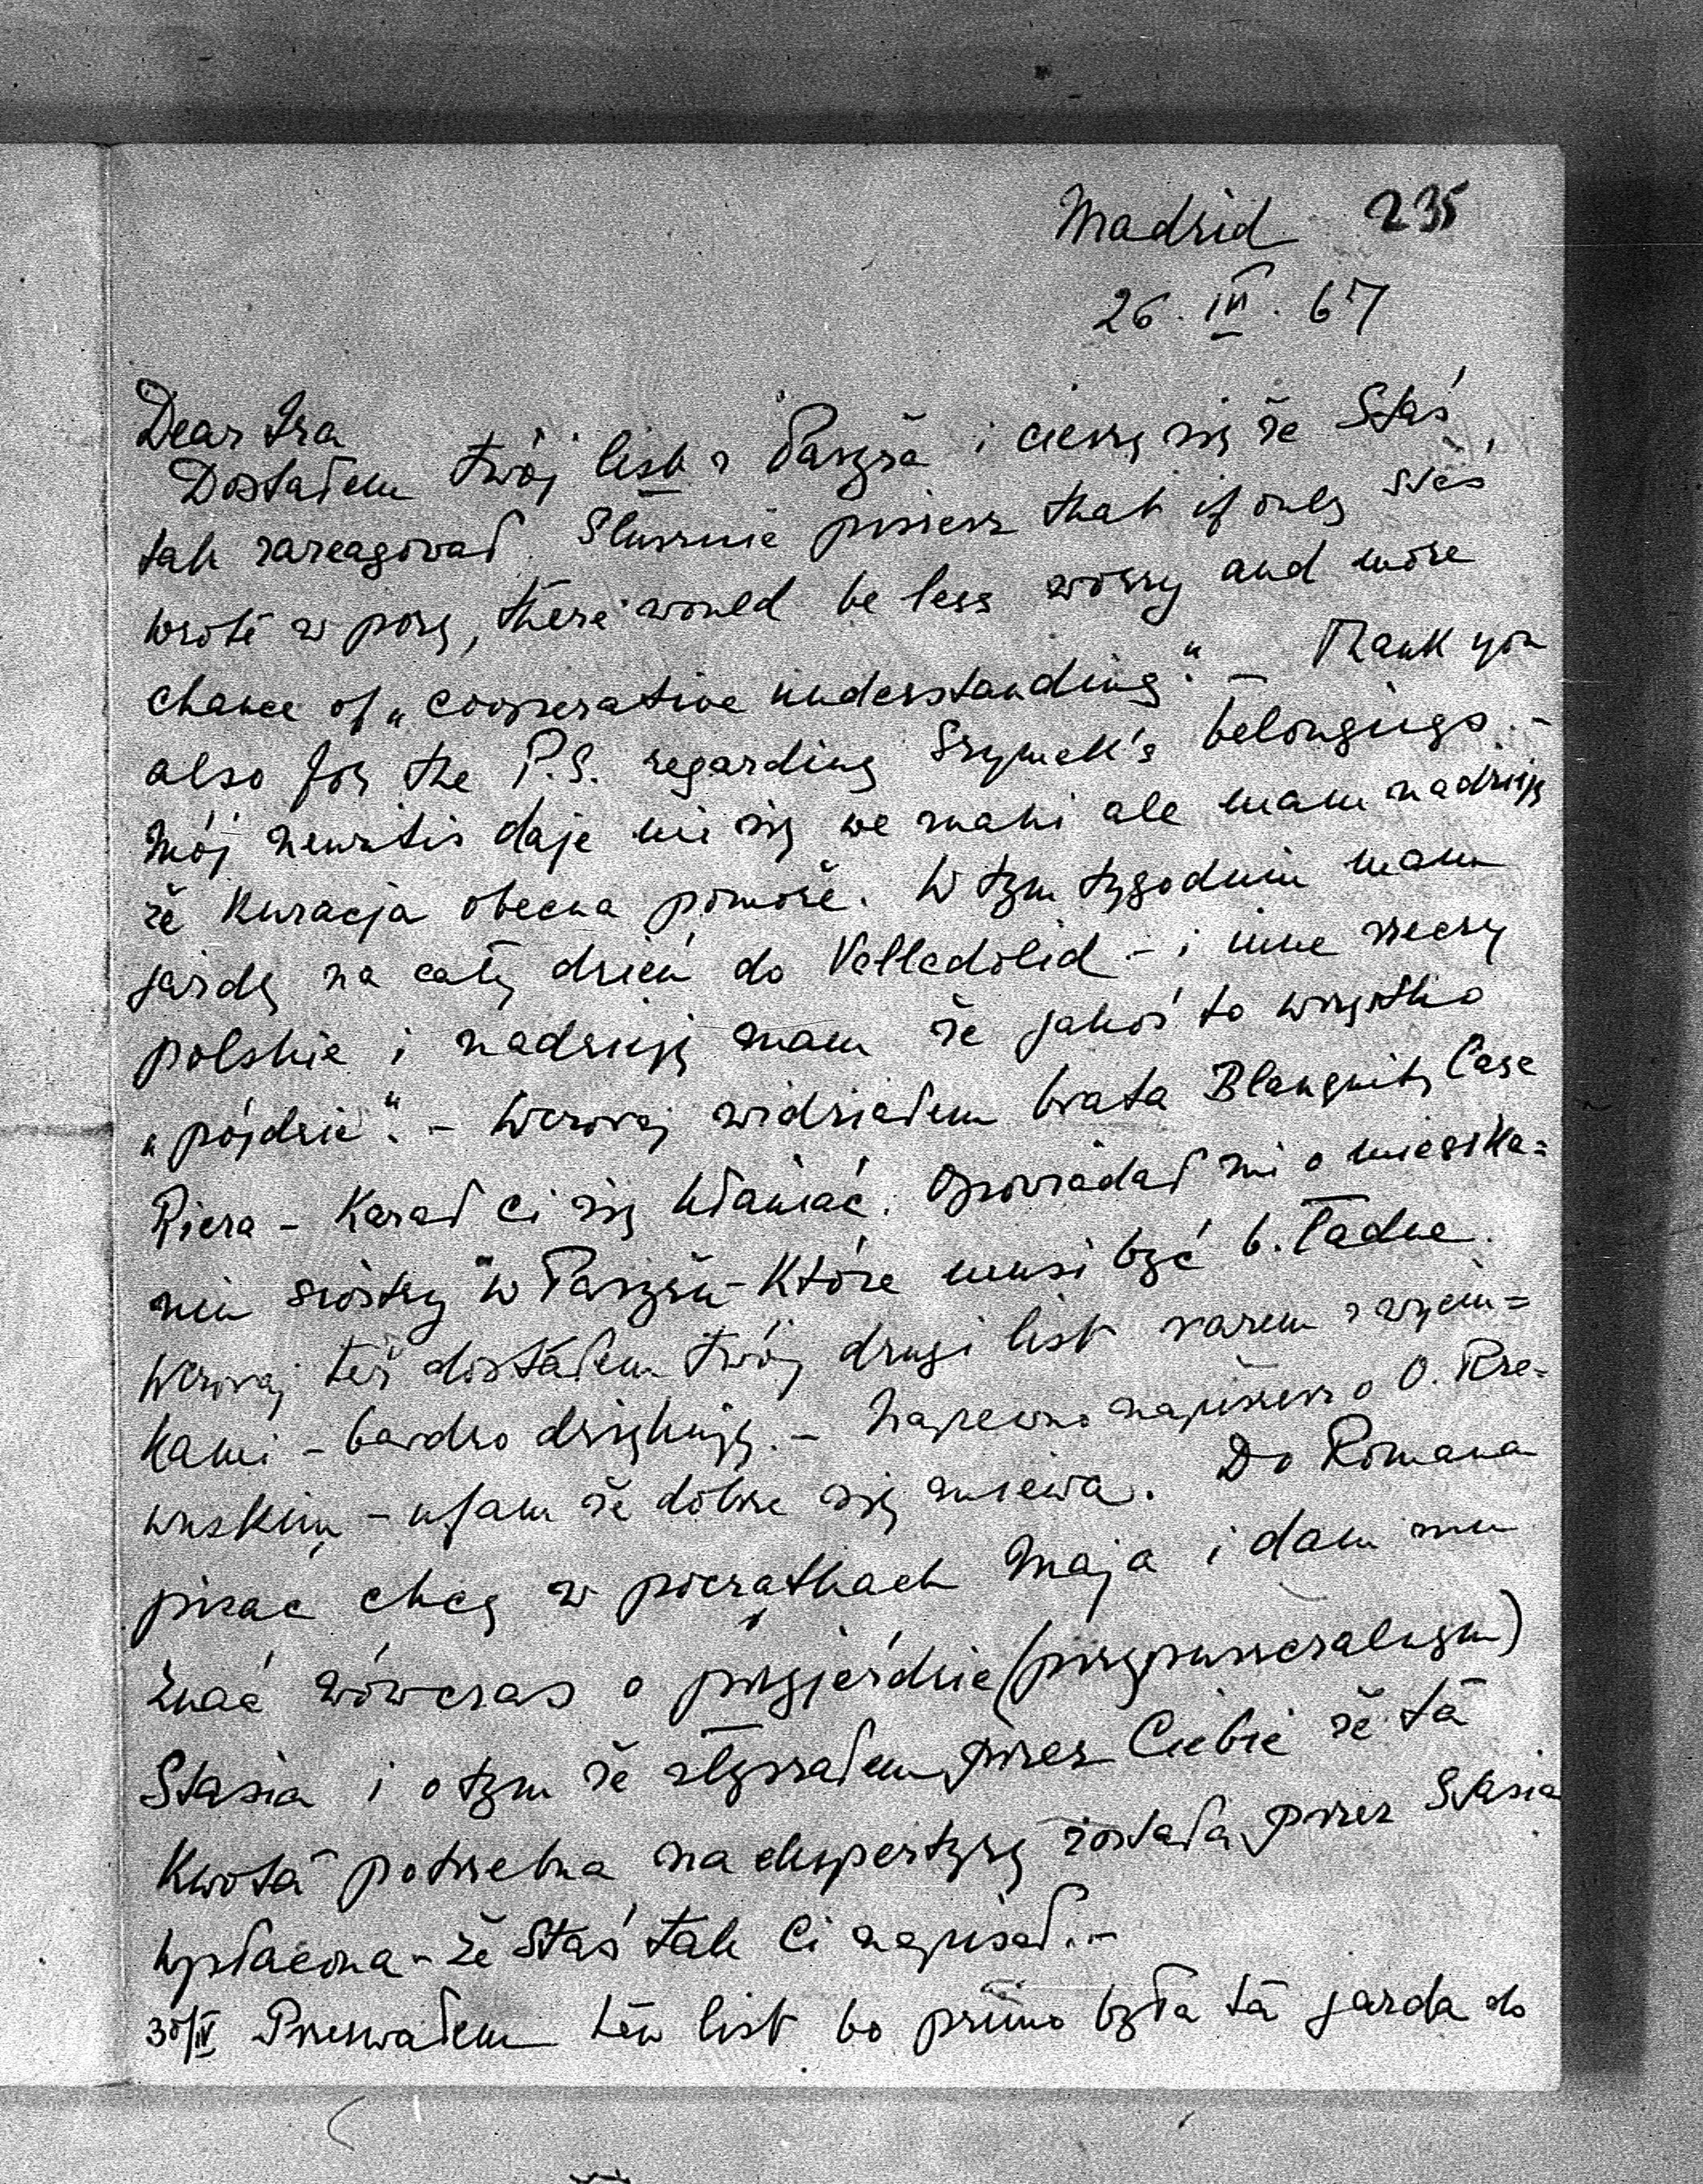 Madrid 235
26. IV. 67
Dear Ira
Dostałem twój list z Paryża i cieszę się że Staś
tak zareagował. Słusznie piszesz that if only Staś
wrote w porę, there would be less worry and more
chance of „cooperative understanding“. – Thank you
also for the P.S. regarding Szymek's belongings. –
Mój neuritis daje mi się we znaki ale mam nadzieję
że kuracja obecna pomoże. W tym tygodniu mam
jazdę na cały dzień do Valladolid – i inne rzeczy
polskie i nadzieję mam że jakoś to wszystko
„pójdzie“. – Wczoraj widziałem brata Blanquity Case
Riera – Kazał Ci się kłaniać. Opowiadał mi o mieszka=
niu siostry w Paryżu – które musi być b. ładne.
Wczoraj też dostałem twój drugi list razem z wycin=
kami – bardzo dziękuję. – Napewno napiszesz o O. Rze-
wuskim – ufam że dobrze się miewa. Do Romana
pisać chcę w początkach Maja i dam mu
znać wówczas o przyjeździe (przypuszczalnym)
Stasia i o tym że słyszałem przez Ciebie że ta
kwota potrzebna na ekspertyzę została przez Stasia
wpłacona – że Staś tak Ci napisał. –
30/IV Przerwałem ten list bo primo była ta jazda do